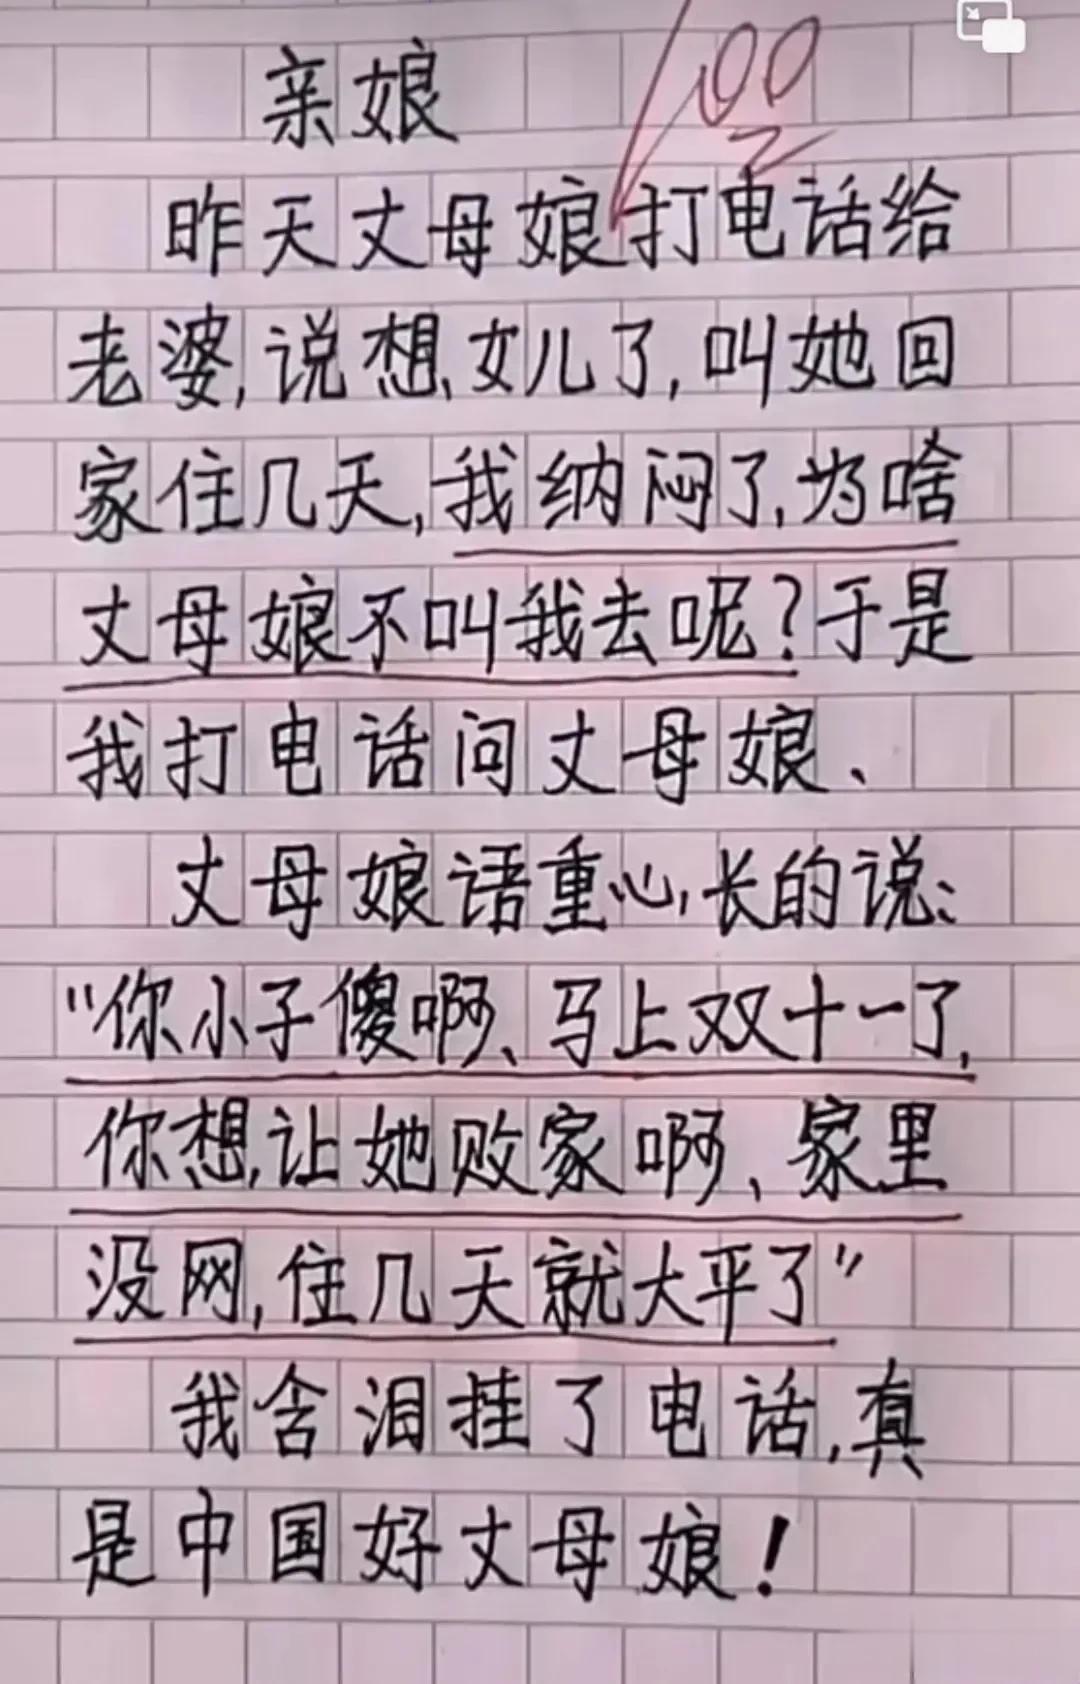 亲娘
100
昨天丈母娘打电话给
老婆,说想女儿了,叫她回
家住几天,我纳闷了,为啥
丈母娘不叫我去呢?于是
我打电话问丈母娘、
丈母娘语重心长的说:
“你小子傻啊、马上双十一了,
你想让她败家啊、家里
没网,住几天就太平了”
我含泪挂了电话,真
是中国好丈母娘!